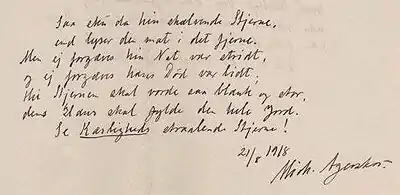 Saa sken da hin skælvende Stjerne,
end lyser den mat i det fjerne.
Men ej forgæves hin Nat var stridt,
og ej forgæves hans Død var lidt;
Hin Stjernen skal vorde saa blank og stor,
dens Glans skal fylde den hele Jord.
Se Kærligheds straalende Stjerne!
21/8 1918
Mich. Agerskov.